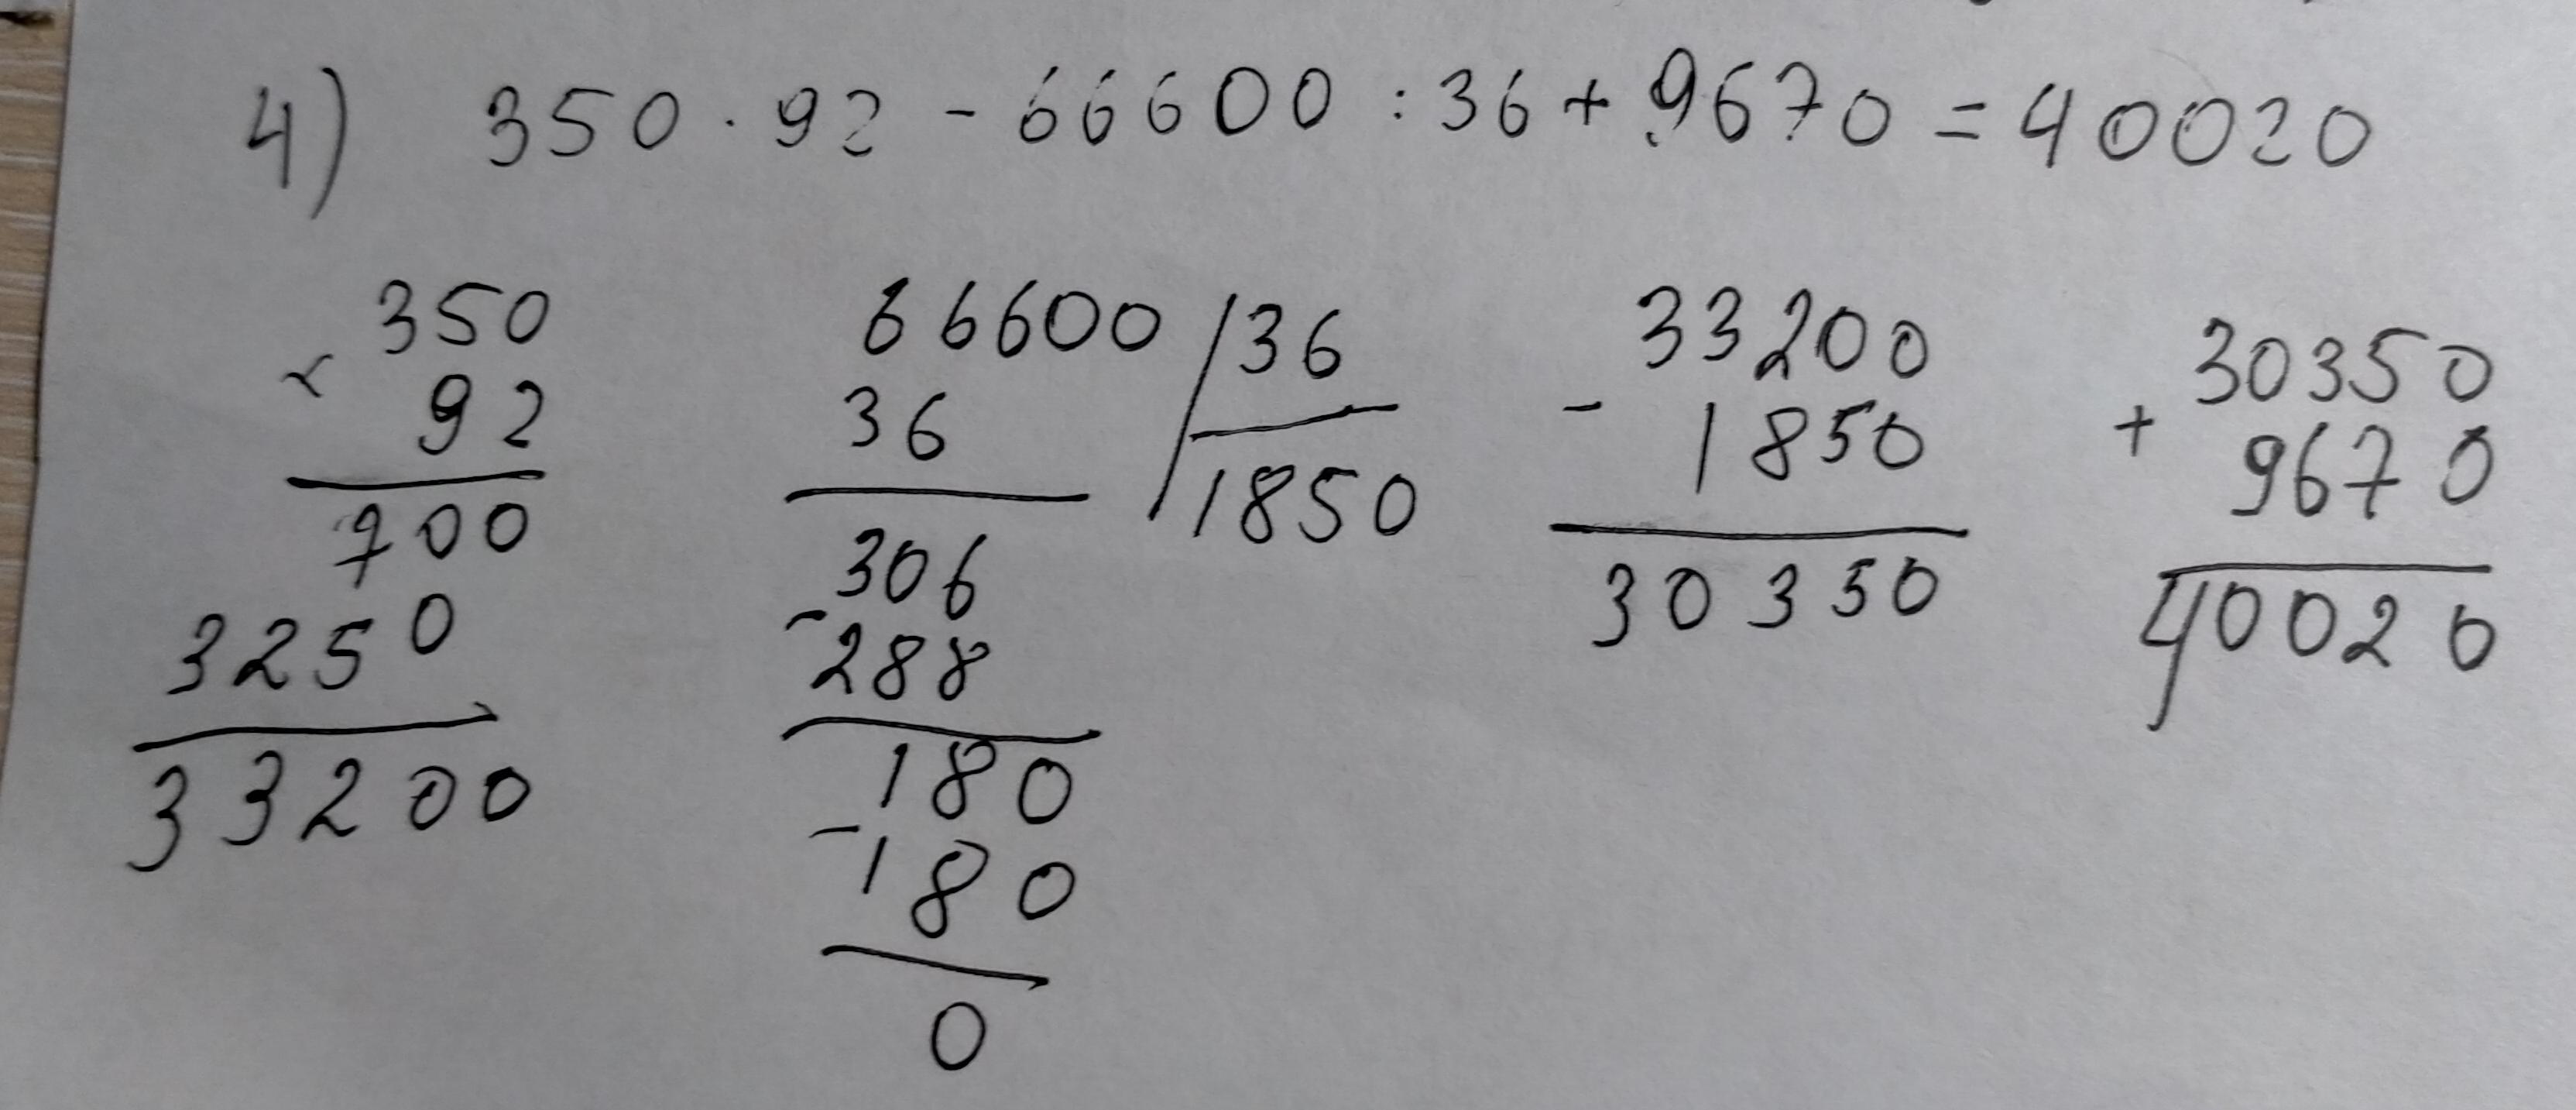 4) 350 · 92 - 66600 : 36 + 9670 = 40020
350
× 92
700
3250
33200
66600 | 36
36
1850
306
- 288
180
- 180
0
33200
- 1850
30350
30350
+ 9670
40020